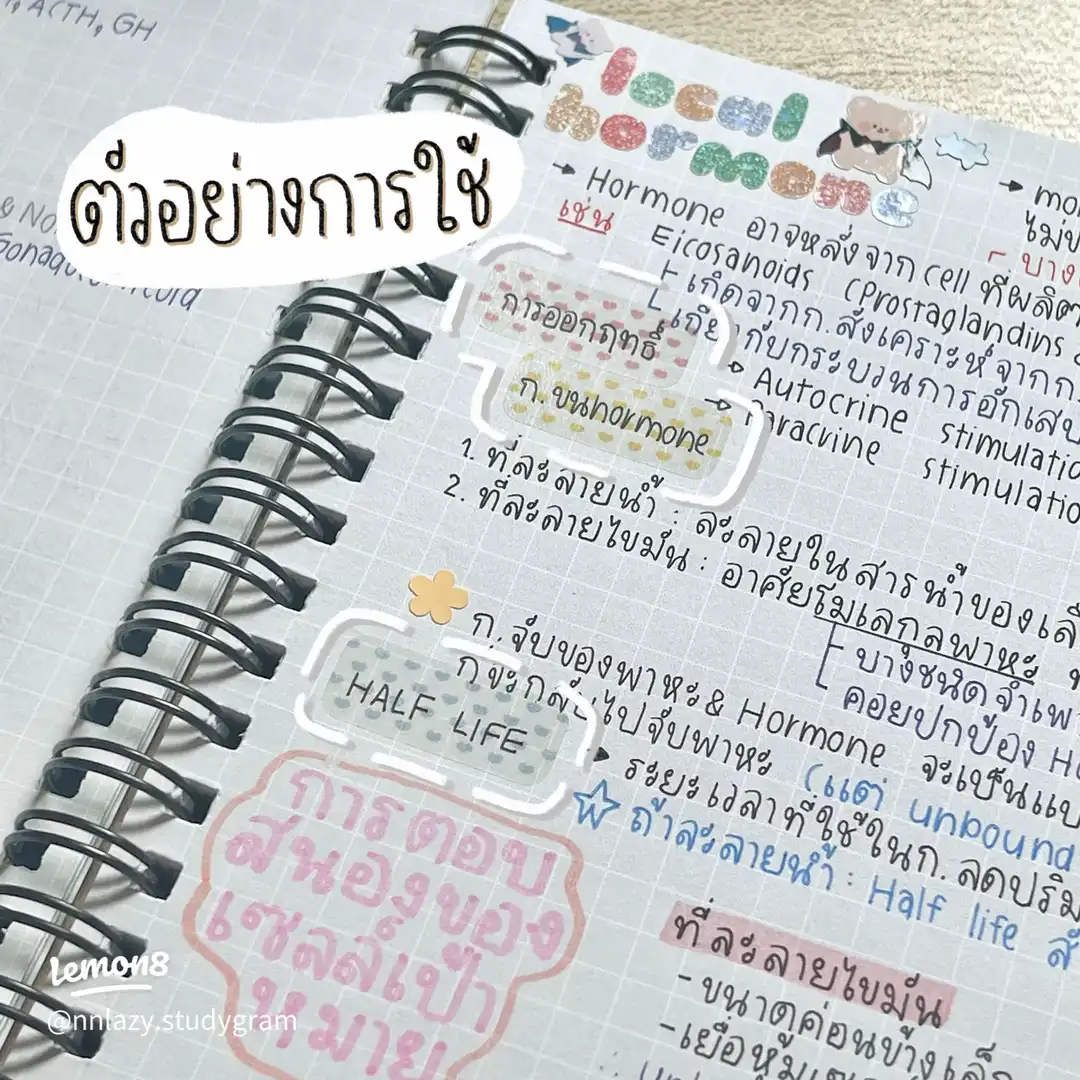 ACTH, GH
ตัวอย่างการใช้
local
hormone
→ Hormone อาจหลั่งจาก cell ที่ผลิต
เช่น Eicosanoids (Prostaglandins
เกิดจากก. สังเคราะห์จากก.
เกี่ยวกับกระบวนการอักเสบ
Autocrine stimulatio
stimulatio
ไม่
บาง
การออกฤทธิ์
ก.ขนhormone
1. ที่ละลายน้ำ : ละลายในสารน้ำของ
2. ที่ละลายไขมัน : อาศัยโมเลกุลพาหะ
บางชนิดจำเพ
คอยปกป้อง H
ก.จับของพาหะ & Hormone จะเป็นแบ
ไปจับพาหะ (แต่ unbound
HALF LIFE
ระยะเวลาที่ใช้ในก. ลดปริม
ถ้าละลายน้ำ : Half life สั
การตอบ
สนองของ
เซลล์เป้า
หมาย
ที่ละลายไขมัน
-ขนาดค่อนข้างเล็ก
lemon8
@nnlazy.studygram